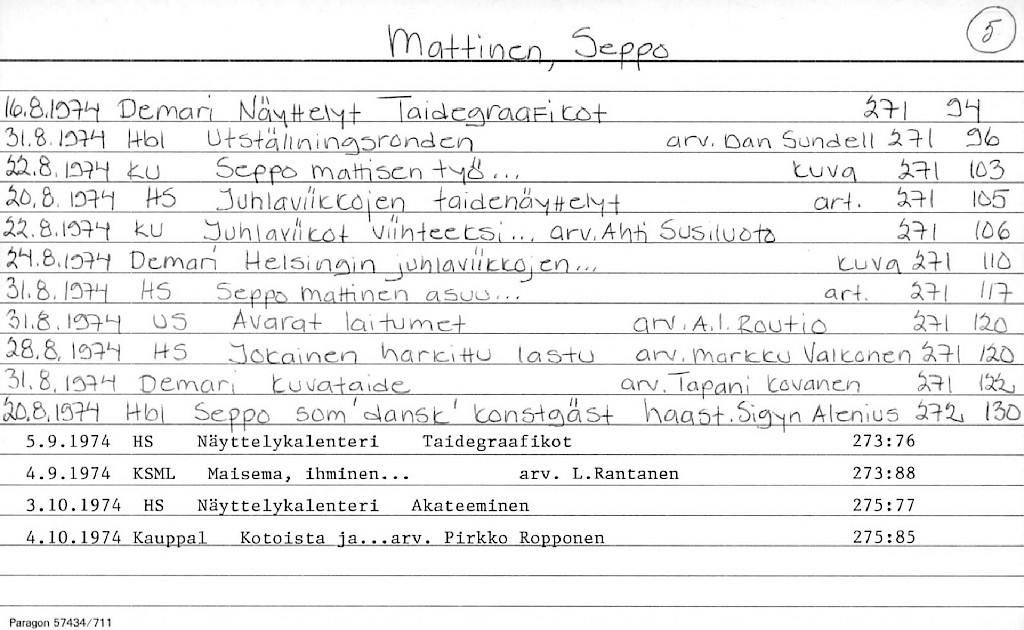 Mattinen, Seppo 5
16.8.1974 Demari Näyttelyt Taidegraafikot 271 94
31.8.1974 Hbl Utställningsronden arv. Dan Sundell 271 96
22.8.1974 KU Seppo mattisen työ... kuva 271 103
20.8.1974 HS Juhlaviikkojen taidenäyttelyt art. 271 105
22.8.1974 KU Juhlaviikot viihteeksi... arv. Ahti Susiluoto 271 106
24.8.1974 Demari Helsingin juhlaviikkojen... kuva 271 110
31.8.1974 HS Seppo mattinen asuu... art. 271 117
31.8.1974 US Avarat laitumet arv. A.I. Routio 271 120
28.8.1974 HS Jokainen harkittu lastu arv. Markku Valkonen 271 120
31.8.1974 Demari Kuvataide arv. Tapani Kovanen 271 122
20.8.1974 Hbl Seppo som 'dansk' konstgäst haast. Sigyn Alenius 272 130
5.9.1974 HS Näyttelykalenteri Taidegraafikot 273:76
4.9.1974 KSML Maisema, ihminen... arv. L.Rantanen 273:88
3.10.1974 HS Näyttelykalenteri Akateeminen 275:77
4.10.1974 Kauppal Kotoista ja...arv. Pirkko Ropponen 275:85
Paragon 57434/711